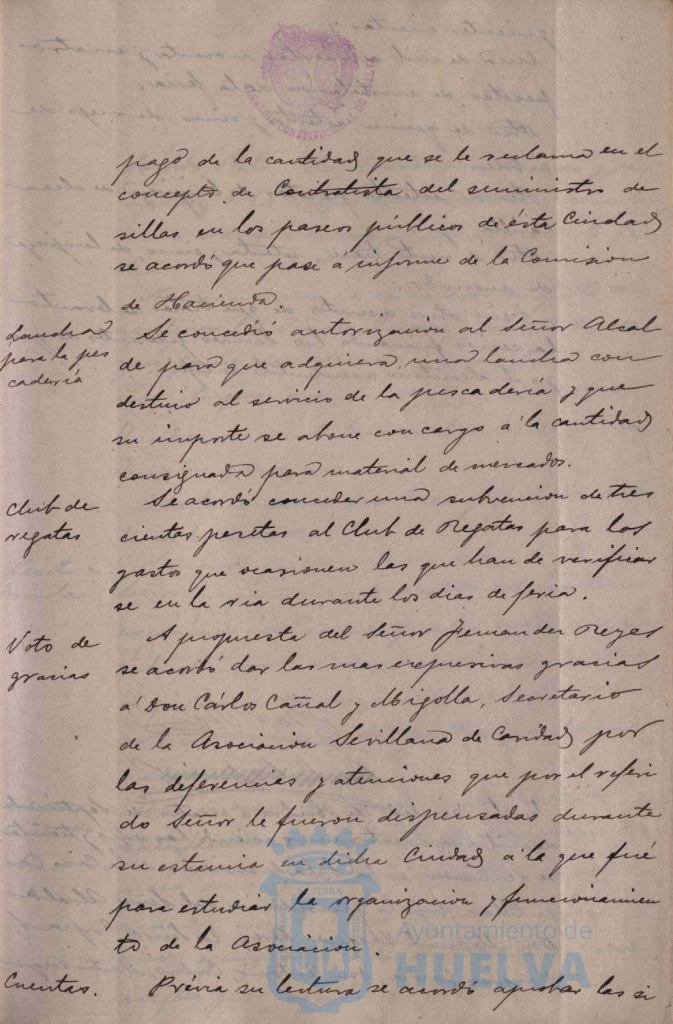 ALCALDIA CONSTITUCIONAL DE HUELVA
pago de la cantidad que se le reclama en el
concepto de Contratista del suministro de
sillas en los paseos públicos de ésta Ciudad
se acordó que pase á informe de la Comision
de Hacienda.
Lancha
para la pes
cadería
Se concedió autorizacion al Señor Alcal
de para que adquiera una lancha con
destino al servicio de la pescadería y que
su importe se abone con cargo á la cantidad
consignada para material de mercados.
Club de
regatas
Se acordó conceder una subvencion de tres
cientas pesetas al Club de Regatas para los
gastos que ocasionen las que han de verificar
se en la ria durante los dias de feria.
Voto de
gracias
A propuesta del Señor Fernandez Reyes
se acordó dar las mas expresivas gracias
á Don Cárlos Cañal y Migolla, Secretario
de la Asociacion Sevillana de Caridad por
las deferencias y atenciones que por el referi
do Señor le fueron dispensadas durante
su estancia en dicha Ciudad á la que fué
para estudiar la organizacion y funcionamien
to de la Asociacion.
Cuentas.
Prévia su lectura se acordó aprobar las si
Ayuntamiento de
HUELVA